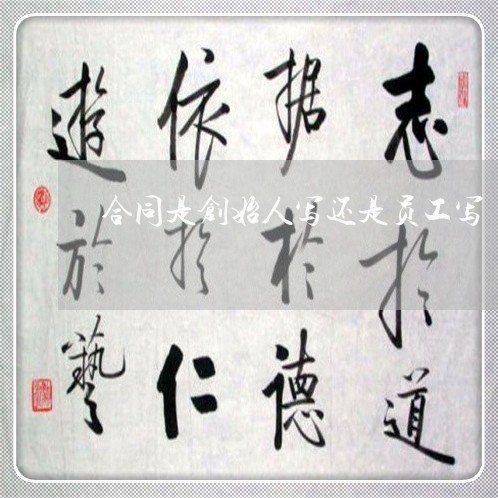 志於道
据於德
依於仁
遊於藝
合同是創始人写还是员工写